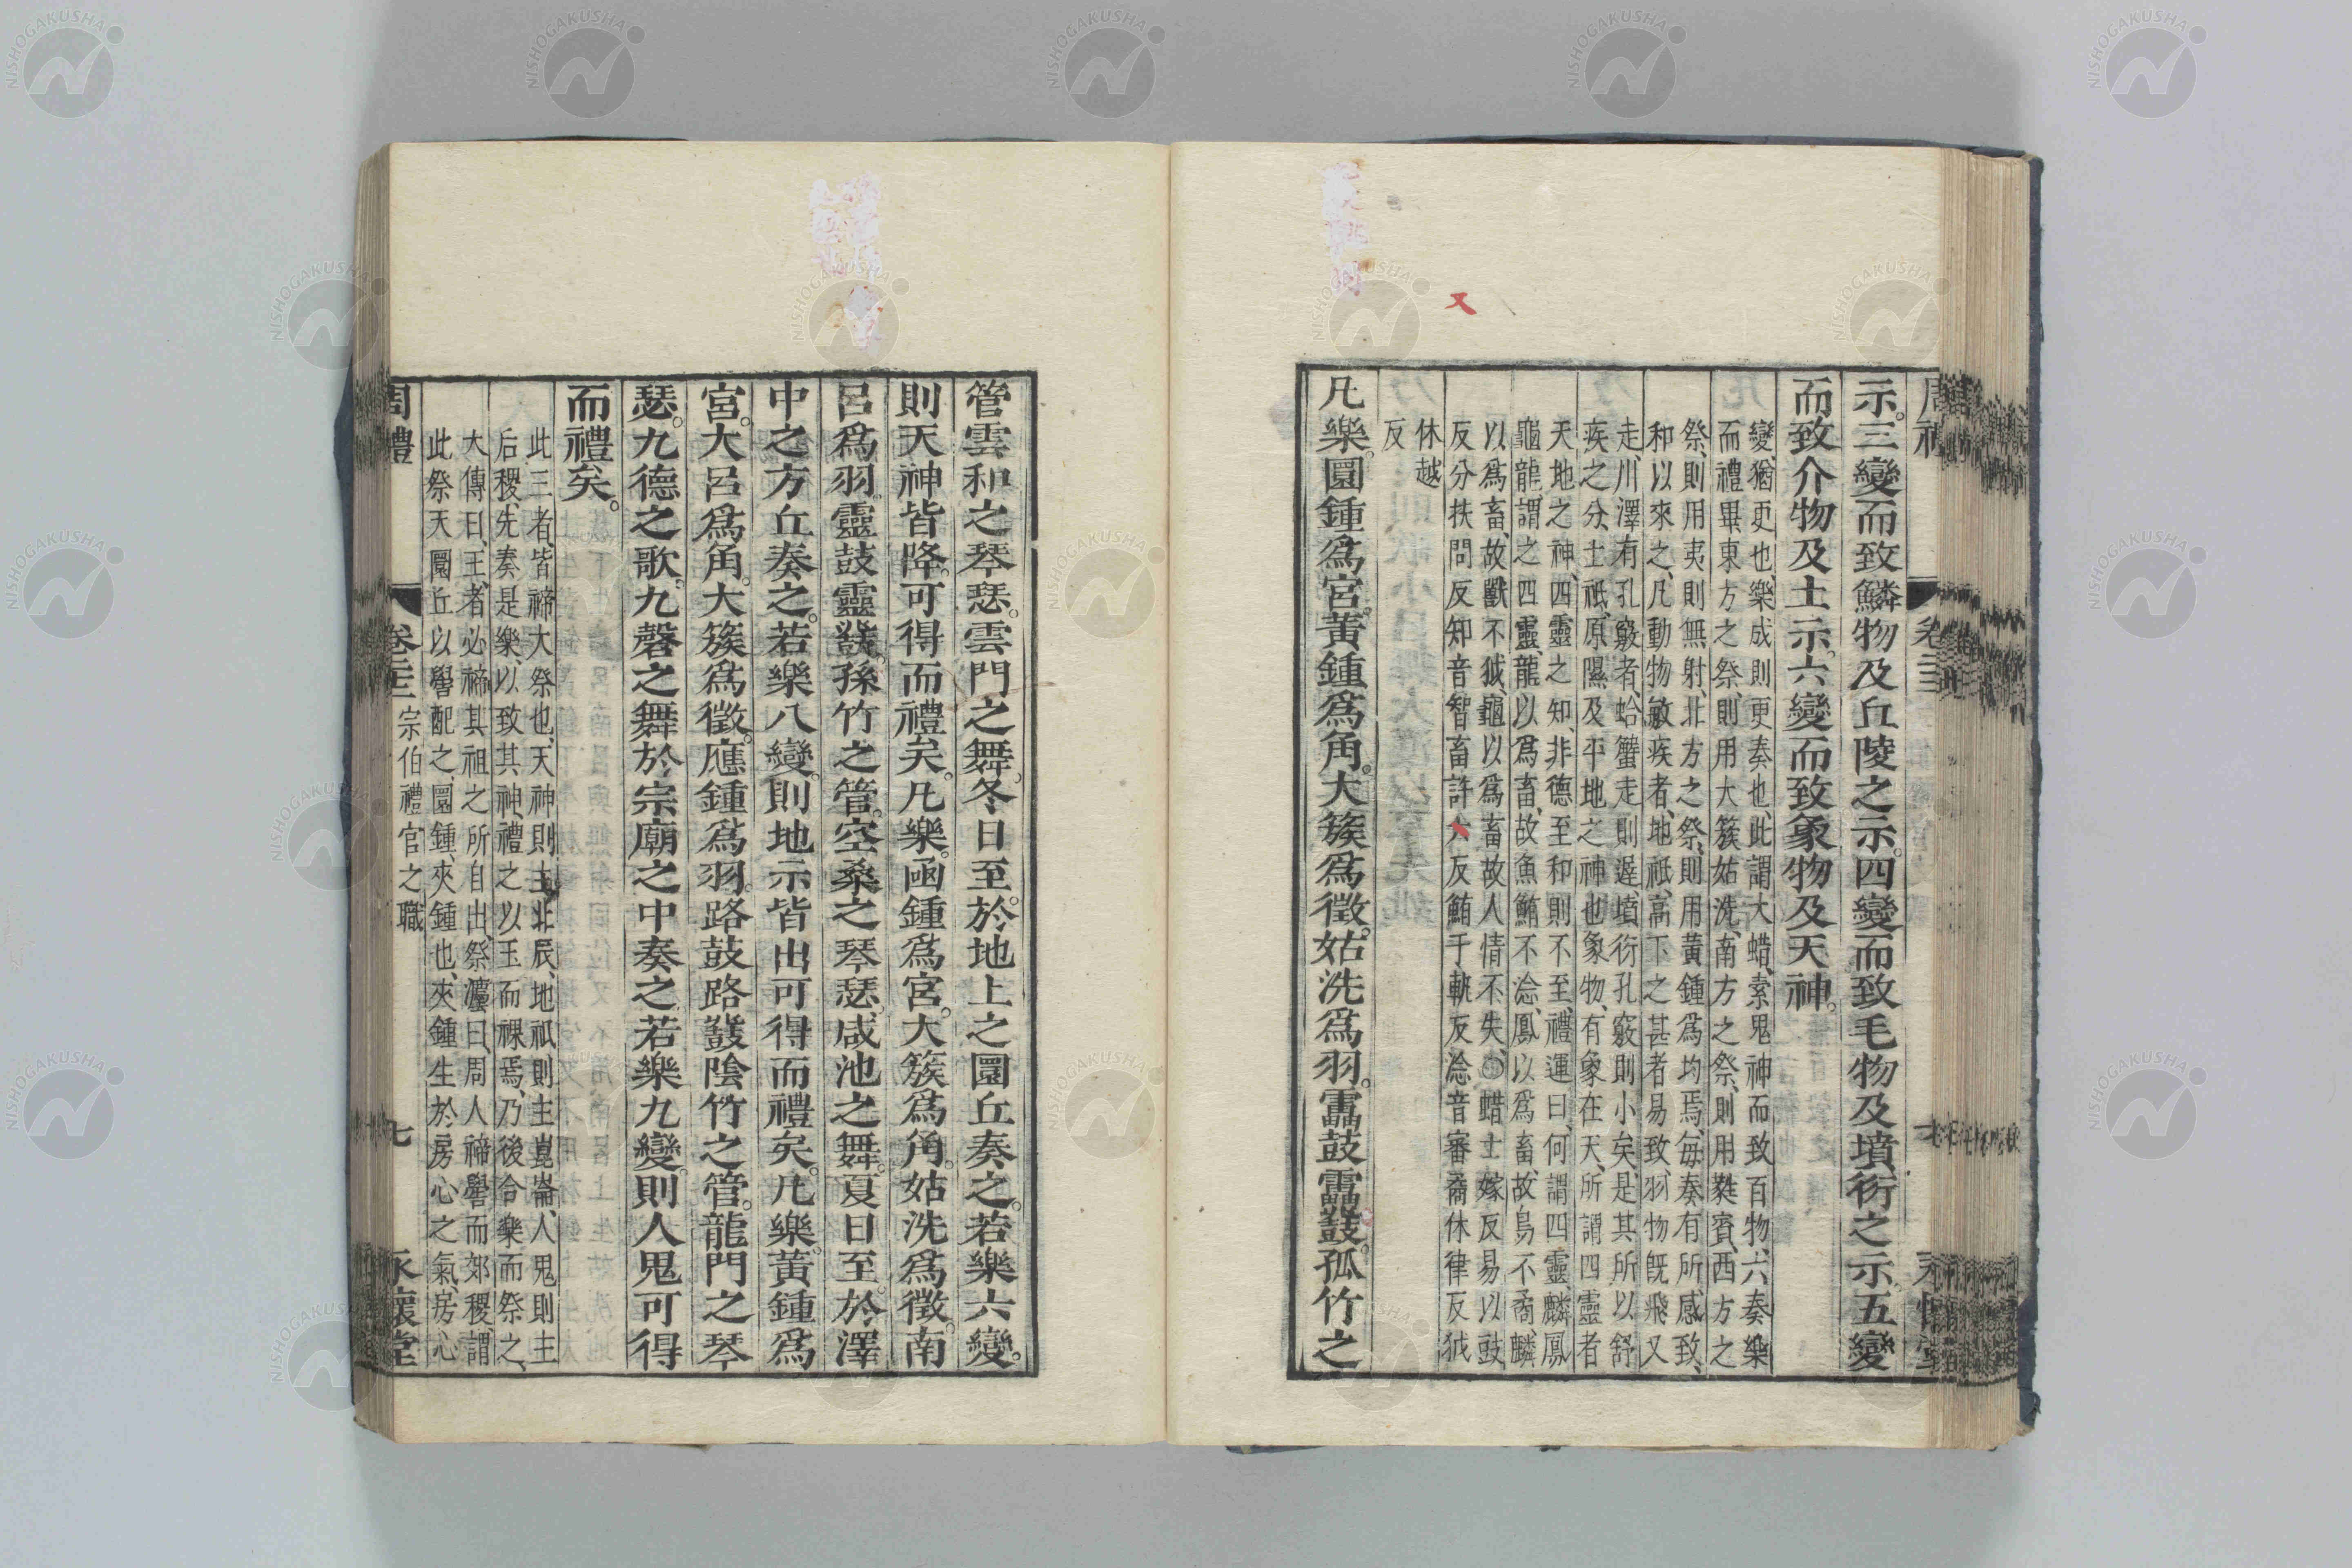 示。三變而致鱗物及丘陵之示。四變而致毛物及墳衍之示。五變
而致介物及土示。六變而致象物及天神。
變、猶更也、樂成則更奏也、此謂大蜡、索鬼神而致百物、六奏樂
而禮畢、東方之祭、則用大簇姑洗、南方之祭、則用蕤賓、西方之
祭、則用夷則無射、北方之祭、則用黃鍾爲均焉、每奏有所感致、
和以來之、凡動物敏疾者、地祇、高下之甚者易致、羽物既飛又
走、川澤有孔竅者、蛤蟹走則遲、墳衍孔竅則小矣、是其所以舒
疾之分、土祇、原隰及平地之神也、象物、有象在天、所謂四靈者
天地之神、四靈之知、非德至和則不至、禮運曰、何謂四靈、麟鳳
龜龍、謂之四靈、龍以爲畜、故魚鮪不淰、鳳以爲畜、故鳥不矞、麟
以爲畜、故獸不狘、龜以爲畜、故人情不失、○蜡士嫁反易以豉
反分扶問反知音智畜許六反鮪于軌反淰音審矞休律反狘
休越
反
凡樂。圜鍾爲宮。黃鍾爲角。大簇爲徵。姑洗爲羽。靁鼓靁鼗。孤竹之
管雲和之琴瑟。雲門之舞。冬日至。於地上之圜丘奏之。若樂六變。
則天神皆降。可得而禮矣。凡樂。函鍾爲宮。大簇爲角。姑洗爲徵。南
呂爲羽。靈鼓靈鼗。孫竹之管。空桑之琴瑟。咸池之舞。夏日至。於澤
中之方丘奏之。若樂八變。則地示皆出可得而禮矣。凡樂。黃鍾爲
宮。大呂爲角。大簇爲徵。應鍾爲羽。路鼓路鼗陰竹之管。龍門之琴
瑟。九德之歌。九磬之舞於宗廟之中奏之若樂九變。則人鬼可得
而禮矣。
此三者、皆禘大祭也、天神則主北辰、地祇則主崑崙、人鬼則主
后稷、先奏是樂、以致其神、禮之以玉而祼焉、乃後合樂而祭之、
大傳曰、王者必禘其祖之所自出、祭灋曰、周人禘嚳而郊稷、謂
此祭天圜丘以嚳配之、圜鍾、夾鍾也、夾鍾生於房心之氣、房心
周禮 卷二十二 宗伯禮官之職 七 永懷堂